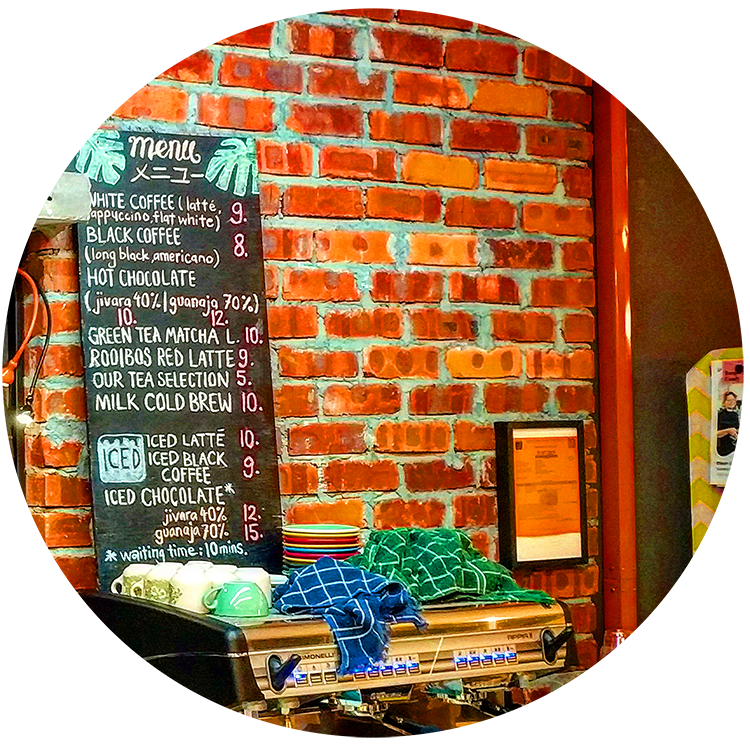 menu
メニュー
WHITE COFFEE (latté, 9.
cappuccino, flat white)
BLACK COFFEE 8.
(long black, americano)
HOT CHOCOLATE
(jivara 40% | guanaja 70%)
10. 12.
GREEN TEA MATCHA L. 10.
ROOIBOS RED LATTE 9.
OUR TEA SELECTION 5.
MILK COLD BREW 10.
ICED
ICED LATTÉ 10.
ICED BLACK COFFEE 9.
ICED CHOCOLATE*
jivara 40% 12.
guanaja 70%. 15.
* waiting time : 10 mins.
SIMONELLI
APPIA II